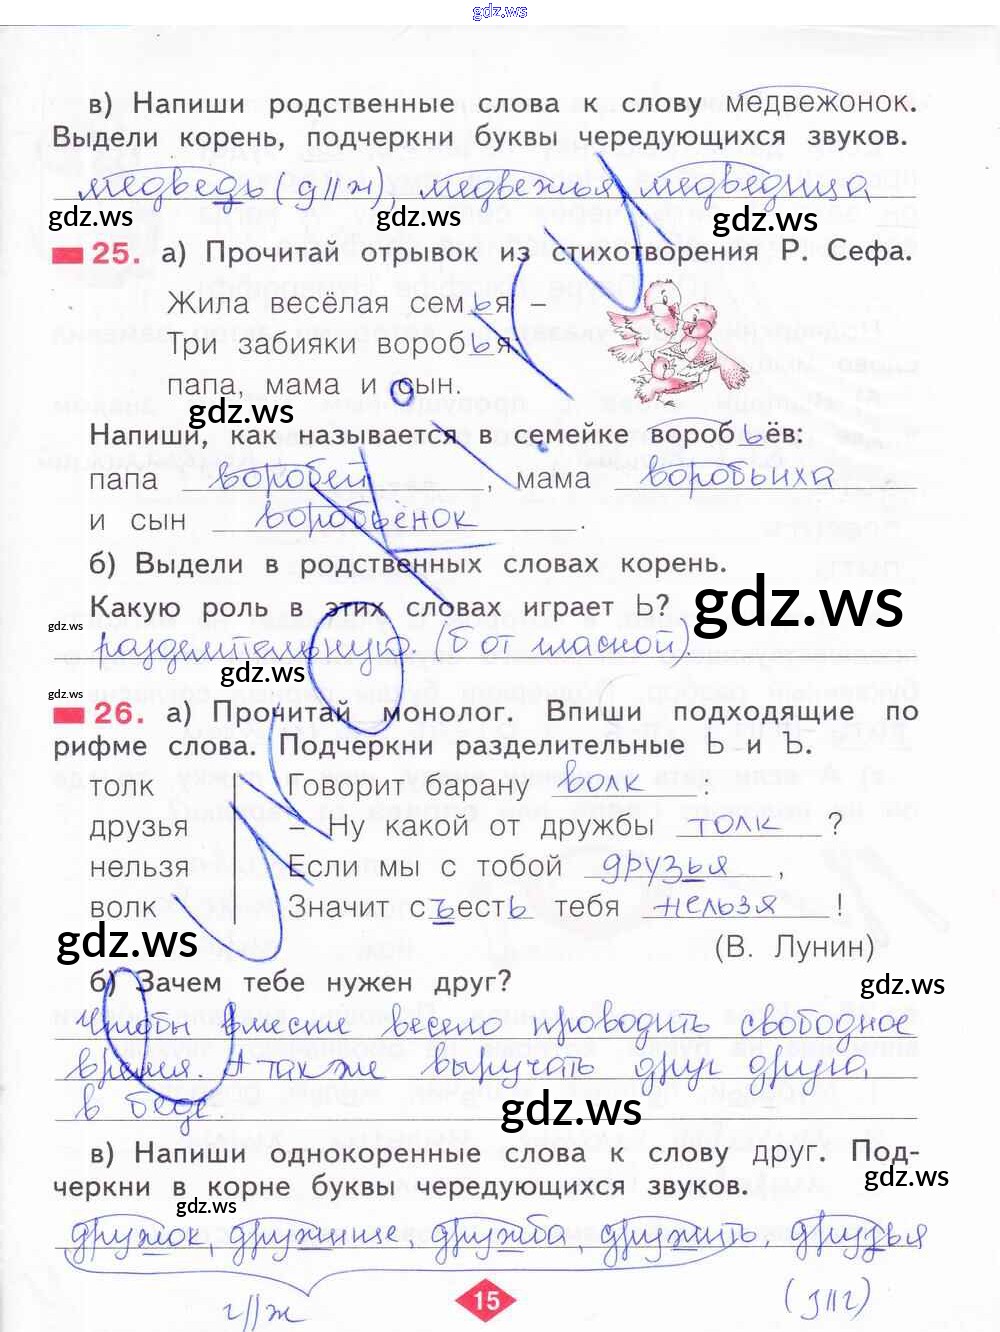 gdz.ws
в) Напиши родственные слова к слову медвежонок.
Выдели корень, подчеркни буквы чередующихся звуков.
медведь (д||ж), медвежья, медведица
gdz.ws gdz.ws gdz.ws
25. а) Прочитай отрывок из стихотворения Р. Сефа.
Жила весёлая семья –
Три забияки воробья:
папа, мама и сын.
gdz.ws
Напиши, как называется в семейке воробьёв:
папа воробей, мама воробьиха
и сын воробьёнок.
б) Выдели в родственных словах корень.
Какую роль в этих словах играет Ь?
gdz.ws gdz.ws
разделительную. (б от гласной).
gdz.ws
gdz.ws
26. а) Прочитай монолог. Впиши подходящие по
рифме слова. Подчеркни разделительные Ь и Ъ.
толк Говорит барану волк:
друзья – Ну какой от дружбы толк?
нельзя Если мы с тобой друзья,
волк Значит съесть тебя нельзя!
gdz.ws (В. Лунин)
б) Зачем тебе нужен друг?
gdz.ws
Чтобы вместе весело проводить свободное
время. А также выручать друг друга,
в беде.
gdz.ws
в) Напиши однокоренные слова к слову друг. Под-
черкни в корне буквы чередующихся звуков.
gdz.ws gdz.ws
дружок, дружище, дружба, дружить, друзья
г||ж 15 (з||г)